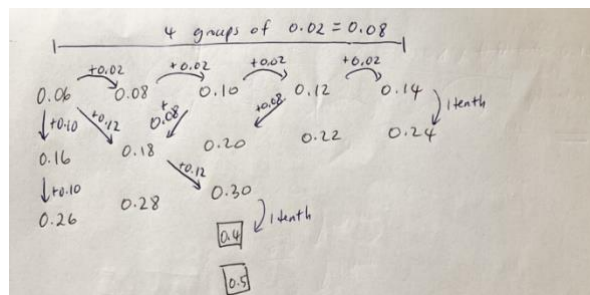 4 groups of 0.02 = 0.08
+0.02 +0.02 +0.02 +0.02
0.06 0.08 0.10 0.12 0.14
+0.10 +0.12 +0.08 +0.08 1 tenth
0.16 0.18 0.20 0.22 0.24
+0.10 +0.12
0.26 0.28 0.30
1 tenth
0.4
0.5